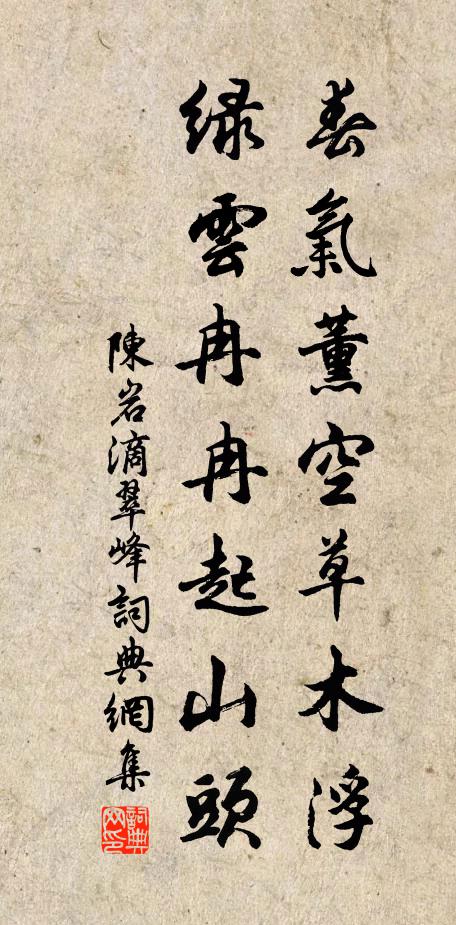 春氣薰空草木浮
緑雲冉冉起山頭
陳岩滴翠峰詞典網集
詞典网印